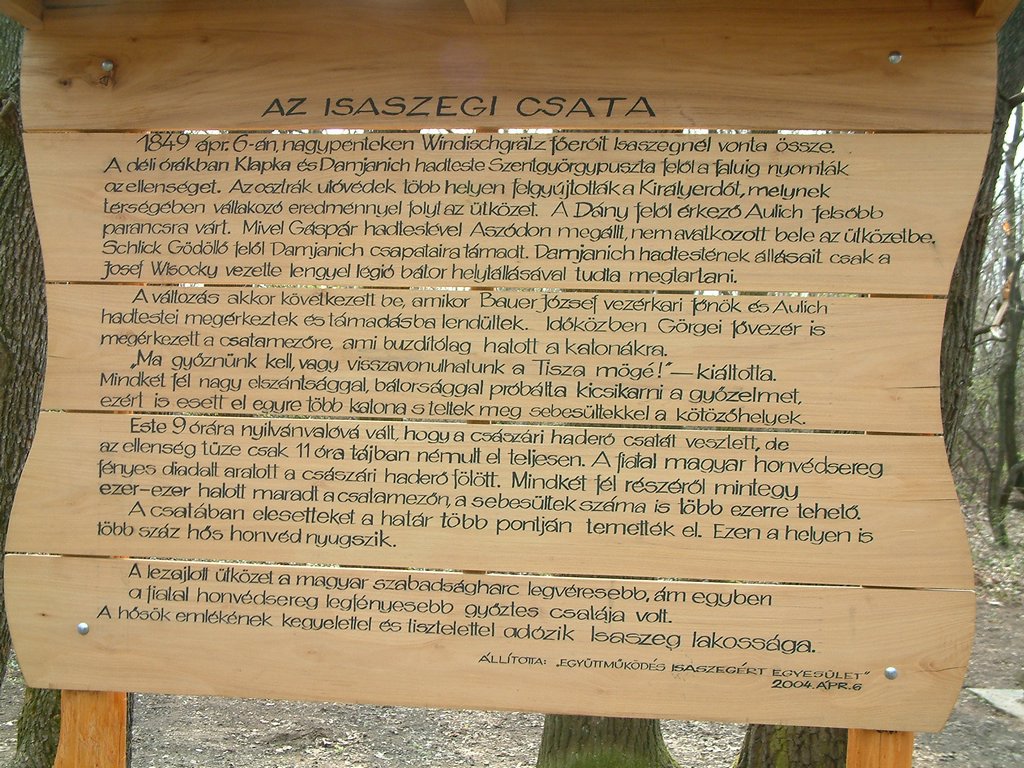 AZ ISASZEGI CSATA
1849 ápr. 6-án, nagypénteken Windischgrätz főerőit Isaszegnél vonta össze.
A déli órákban Klapka és Damjanich hadteste Szentgyörgypuszta felől a faluig nyomták
az ellenséget. Az osztrák utóvédek több helyen felgyújtották a Királyerdőt, melynek
térségében váltakozó eredménnyel folyt az ütközet. A Dány felől érkező Aulich felsőbb
parancsra várt. Mivel Gáspár hadtestével Aszódon megállt, nem avatkozott bele az ütközetbe.
Schlick Gödöllő felől Damjanich csapataira támadt. Damjanich hadtestének állásait csak a
Josef Wisocky vezette lengyel legió bátor helytállásával tudta megtartani.
A változás akkor következett be, amikor Bauer József vezérkari főnök és Aulich
hadtestei megérkeztek és támadásba lendültek. Időközben Görgei fővezér is
megérkezett a csatamezőre, ami buzdítólag hatott a katonákra.
„Ma győznünk kell, vagy visszavonulhatunk a Tisza mögé!” — kiáltotta.
Mindkét fél nagy elszántsággal, bátorsággal próbálta kicsikarni a győzelmet,
ezért is esett el egyre több katona s teltek meg sebesültekkel a kötözőhelyek.
Este 9 órára nyilvánvalóvá vált, hogy a császári haderő csatát vesztett, de
az ellenség tüze csak 11 óra tájban némult el teljesen. A fiatal magyar honvédsereg
fényes diadalt aratott a császári haderő fölött. Mindkét fél részéről mintegy
ezer-ezer halott maradt a csatamezőn, a sebesültek száma is több ezerre tehető.
A csatában elesetteket a határ több pontján temették el. Ezen a helyen is
több száz hős honvéd nyugszik.
A lezajlott ütközet a magyar szabadságharc legvéresebb, ám egyben
a fiatal honvédsereg legfényesebb győztes csatája volt.
A hősök emlékének kegyelettel és tisztelettel adózik Isaszeg lakossága.
ÁLLÍTOTTA: „EGYÜTTMŰKÖDÉS ISASZEGÉRT EGYESÜLET”
2004. ÁPR. 6